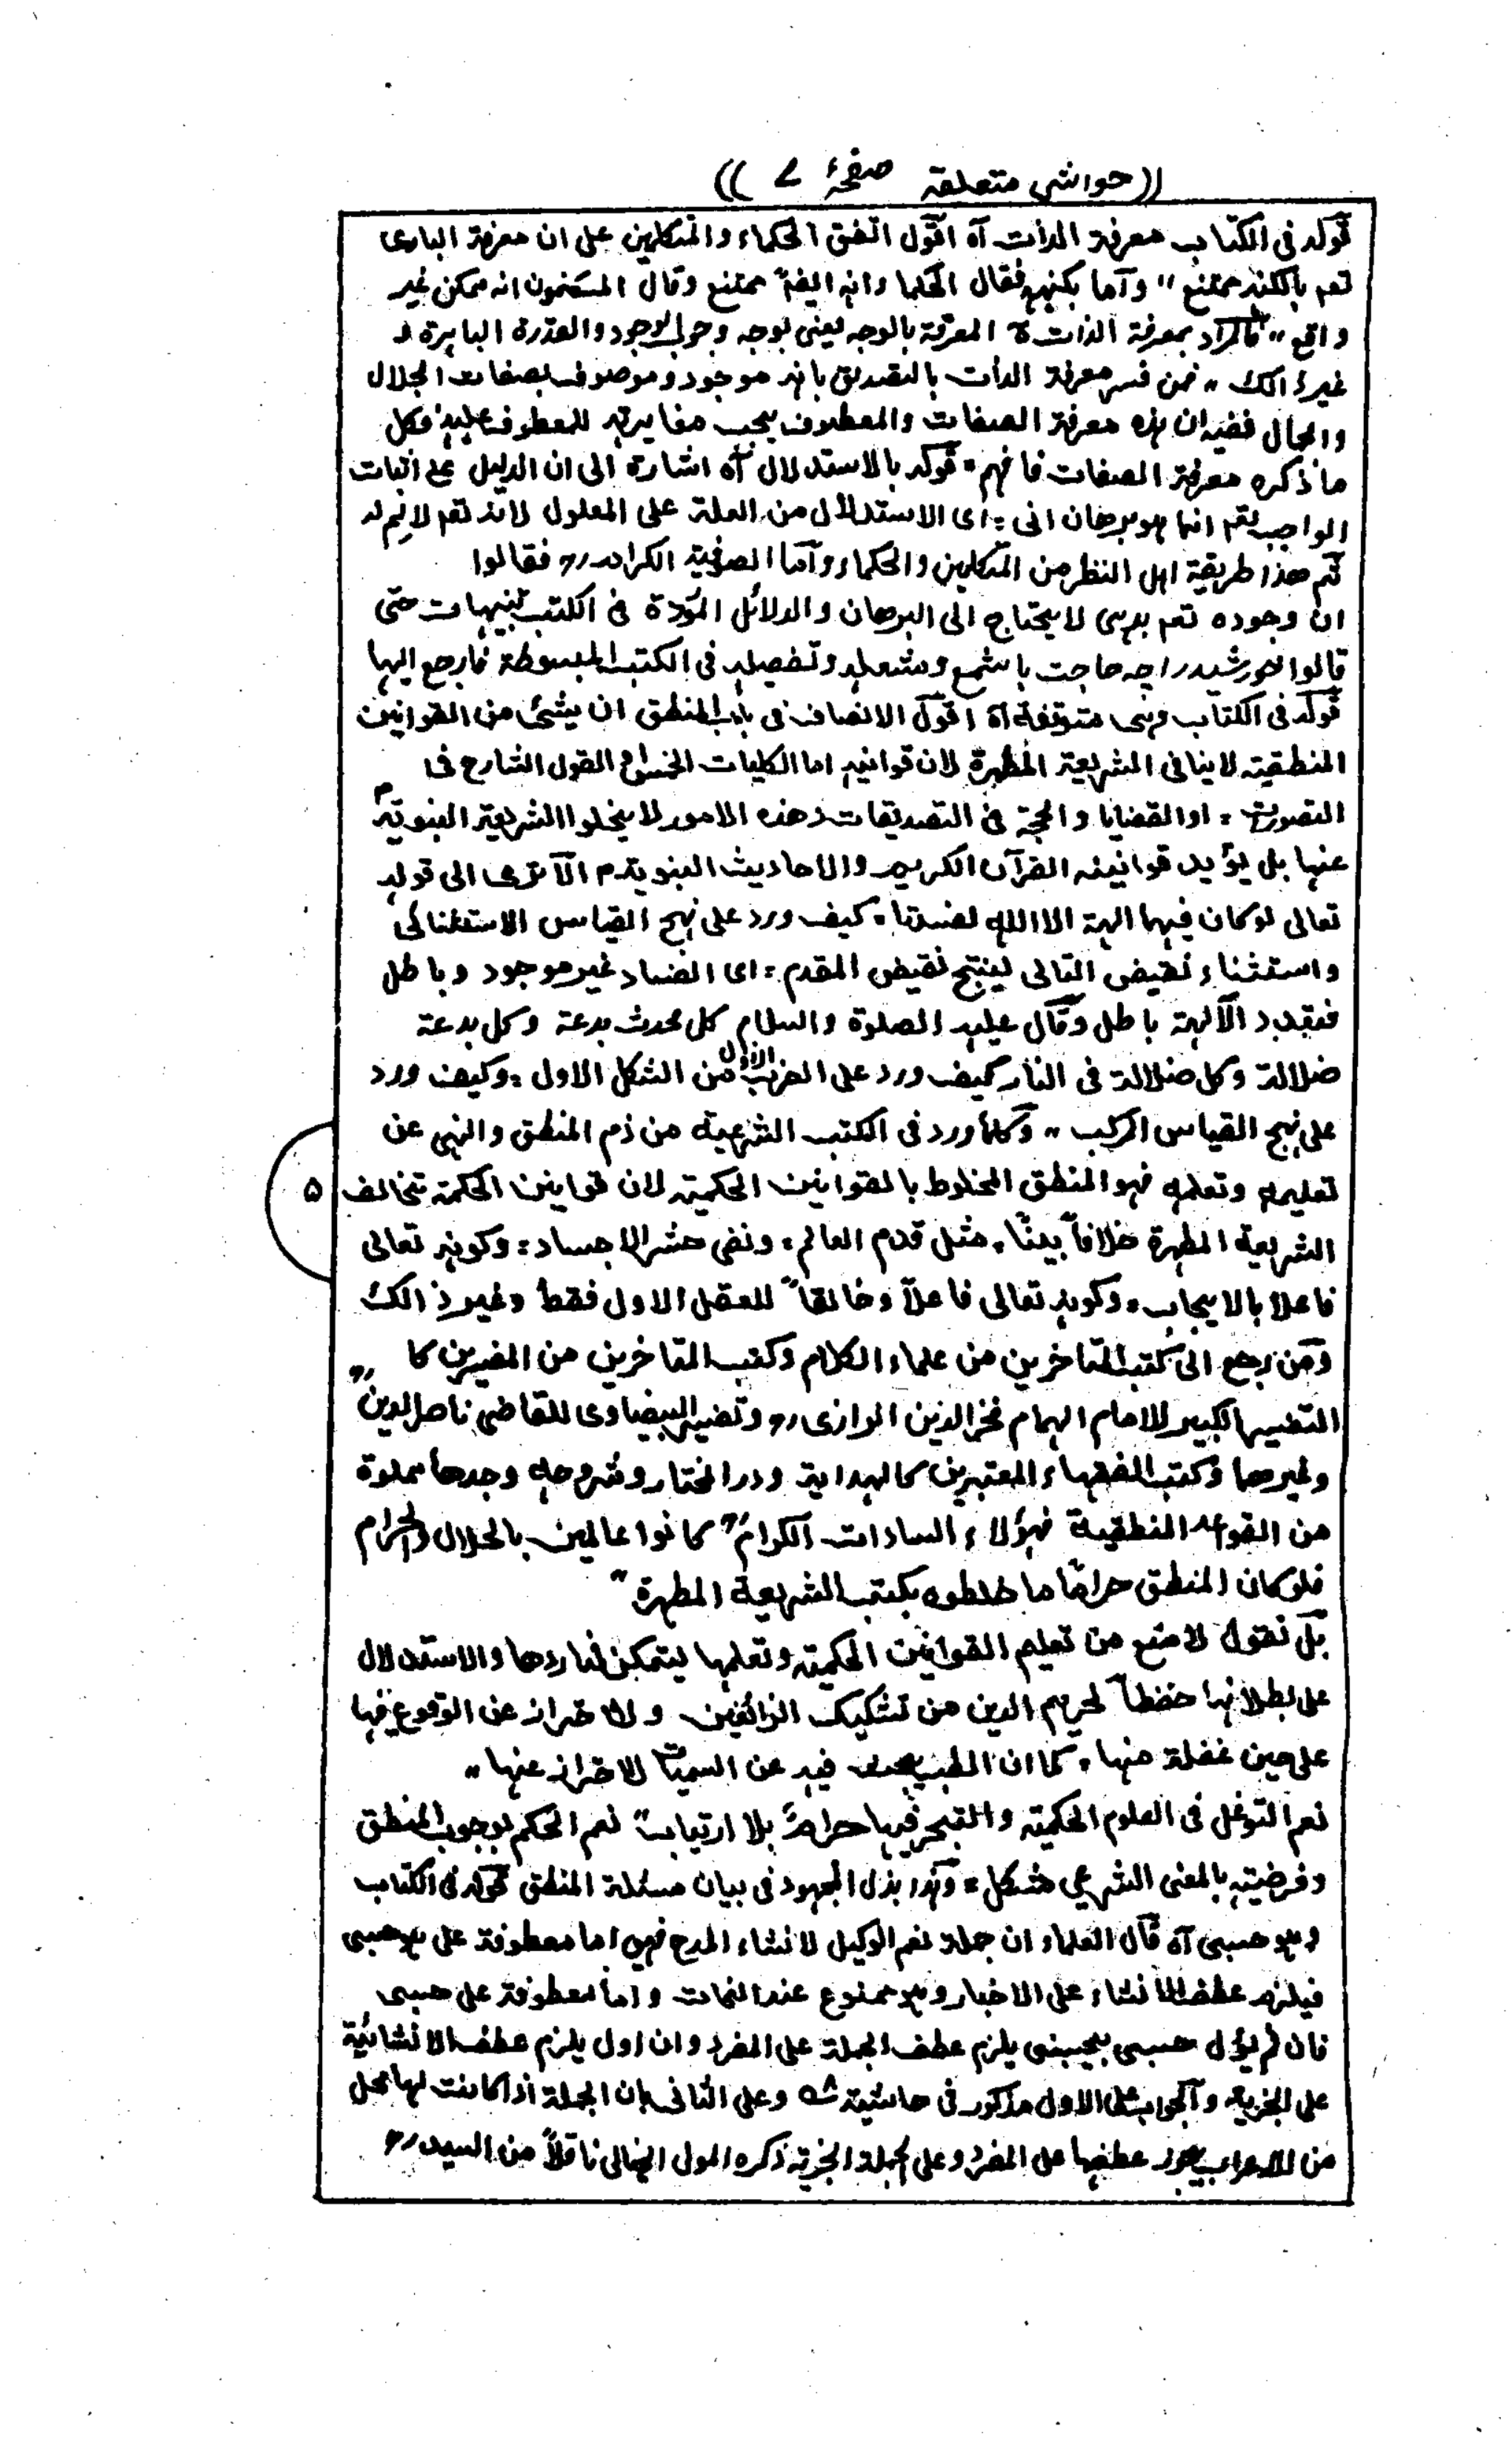 ((حواشی متعلقہ صفحۂ ۷))
قوله فی الکتاب معرفة الذات آه اقول اتفق الحکماء والمتکلمین علی ان معرفة الباری
تعم بالکنه ممتنع " وآما بکنهه فقال الحکما وانه ایضاً ممتنع وقال المتکلمون انه ممکن غیر
واقع " فالمراد بمعرفة الذات المعرفة بالوجه یعنی بوجه وجوب الوجود والقدرة الباهرة او
غیر ذالک " فمن فسر معرفة الذات بالتصدیق بانه موجود و موصوف بصفات الجلال
والجمال ففیه ان هذه معرفة الصفات والمعطوف یجب مغایرته للمعطوف علیه فکل
ما ذکره معرفة الصفات فافهم = قوله بالاستدلال آه اشارة الی ان الدلیل علی اثبات
الواجب تعم انما هو برهان انی = ای الاستدلال من العلة علی المعلول لانه تعم لا لم له
ثم هذا طریقة اهل النظر من المتکلمین والحکماء وآما الصوفیة الکرام رح فقالوا
ان وجوده تعم بدیهی لا یحتاج الی البرهان والدلائل الموردة فی الکتب تنبیهات حتی
قالوا خورشید را چه حاجت با شمع و مشعله وتفصیله فی الکتب المبسوطة فارجع الیها
قوله فی الکتاب وهی متوقفة آه اقول الانصاف فی باب المنطق ان یشئ من القوانین
المنطقیة لا ینافی الشریعة المطهرة لان قوانینه اما الکلیات الخمس او القول الشارح فی
التصورات = او القضایا والحجة فی التصدیقات وهذه الامور لا یخلوا الشریعة النبویة م
عنها بل یؤید قوانینه القرآن الکریم والاحادیث النبویة م الآ تری الی قوله
تعالی لوکان فیهما الهة الا الله لفسدتا ، کیف ورد علی نهج القیاس الاستثنائی
واستثناء نقیض التالی لینتج نقیض المقدم = ای الفساد غیر موجود وباطل
فتعدد الآلهة باطل وقال علیه الصلوة والسلام کل محدث بدعة وکل بدعة
ضلالة وکل ضلالة فی النار کیف ورد علی الضرب الاول من الشکل الاول = وکیف ورد
علی نهج القیاس المرکب " وکلما ورد فی الکتب الشرعیة من ذم المنطق والنهی عن
تعلیمه وتعلمه فهو المنطق المخلوط بالقوانین الحکمیة لان قوانین الحکمة تخالف ۵
الشریعة المطهرة خلافاً بیناً ، مثل قدم العالم = ونفی حشر الاجساد = وکونه تعالی
فاعلا بالایجاب = وکونه تعالی فاعلاً وخالقاً للعقل الاول فقط وغیر ذالک
ومن رجع الی کتب المتاخرین من علماء الکلام وکتب المتاخرین من المفسرین کا
التفسیر الکبیر للامام الهمام فخر الدین الرازی رح وتفسیر البیضاوی للقاضی ناصر الدین رح
وغیرهما وکتب الفقهاء المعتبرین کالهدایة ودر المختار وشروحه وجدها مملوة
من القواعد المنطقیة فهؤلاء السادات الکرام رح کانوا عالمین بالحلال والحرام
فلوکان المنطق حراماً ما خلطوه بکتب الشریعة المطهرة "
بل نقول لا منع من تعلیم القوانین الحکمیة وتعلمها لیتمکن لنا ردها والاستدلال
علی بطلانها حفظاً لحریم الدین من تشکیک الزائغین وللاحتراز عن الوقوع فیها
علی حین غفلة منها ، کما ان الطب یبحث فیه عن السمیات للاحتراز عنها "
نعم التوغل فی العلوم الحکمیة والتبحر فیها حرام بلا ارتیاب " نعم الحکم بوجوب المنطق
وفرضیته بالمعنی الشرعی مشکل = وهذا بذل المجهود فی بیان مسئلة المنطق قوله فی الکتاب
وهو حسبی آه قال العلماء ان جملة نعم الوکیل لانشاء المدح فهی اما معطوفة علی هو حسبی
فیلزم عطف الانشاء علی الاخبار وهو ممنوع عند النحات واما معطوفة علی حسبی
فان لم یؤل حسبی بیحسبنی یلزم عطف الجملة علی المفرد وان اول یلزم عطف الانشائیة
علی الخبریة والجواب علی الاول مذکور فی حاشیة وعلی الثانی بان الجملة اذا کانت لها محل
من الاعراب یجوز عطفها علی المفرد وعلی الجملة الخبریة ذکره المولی الخیالی ناقلاً من السید رح